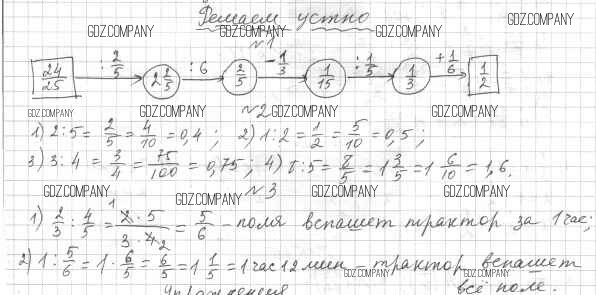 Решаем устно
GDZ.COMPANY GDZ.COMPANY GDZ.COMPANY GDZ.COMPANY
№1
24/25 : 2/5 2 2/5 : 6 2/5 - 1/3 1/15 : 1/5 1/3 + 1/6 1/2
GDZ.COMPANY GDZ.COMPANY GDZ.COMPANY GDZ.COMPANY
№2
1) 2:5 = 2/5 = 4/10 = 0,4; 2) 1:2 = 1/2 = 5/10 = 0,5;
3) 3:4 = 3/4 = 75/100 = 0,75; 4) 8:5 = 8/5 = 1 3/5 = 1 6/10 = 1,6.
GDZ.COMPANY GDZ.COMPANY GDZ.COMPANY GDZ.COMPANY
№3
1) 2/3 : 4/5 = 1 2·5/3·4 2 = 5/6 - поля вспашет трактор за 1 час;
2) 1 : 5/6 = 1 · 6/5 = 6/5 = 1 1/5 = 1 час 12 мин - трактор вспашет
GDZ.COMPANY GDZ.COMPANY
Упражнения всё поле.